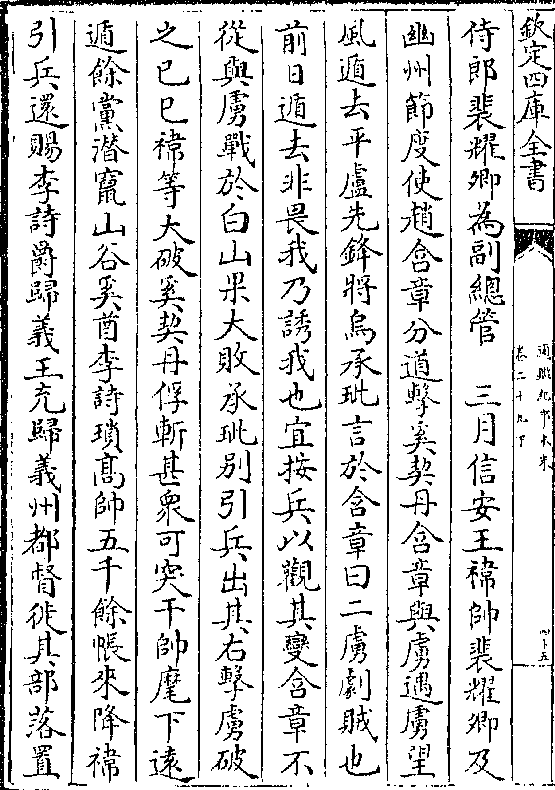 欽定四庫全書
通鑑紀事本末
卷二十九下
四十五
侍郎裴耀卿為副總管　三月信安王禕帥裴耀卿及
幽州節度使趙含章分道擊奚契丹含章與虜遇虜望
風遁去平盧先鋒將烏承玼言於含章曰二虜劇賊也
前日遁去非畏我乃誘我也宜按兵以觀其變含章不
從與虜戰於白山果大敗承玼别引兵出其右擊虜破
之己巳禕等大破奚契丹俘斬甚衆可突干帥麾下遠
遁餘黨潛竄山谷奚酋李詩瑣高帥五千餘帳來降禕
引兵還賜李詩爵歸義王充歸義州都督徙其部落置